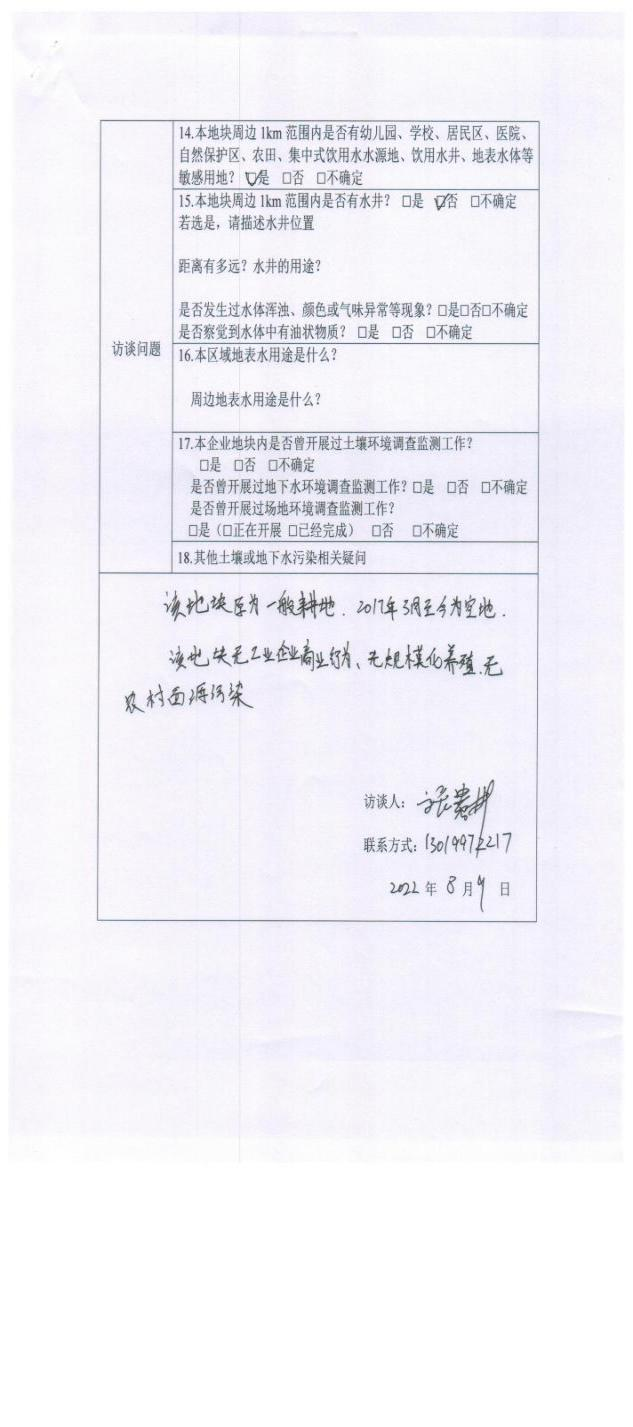 访谈问题
14.本地块周边 1km 范围内是否有幼儿园、学校、居民区、医院、
自然保护区、农田、集中式饮用水水源地、饮用水井、地表水体等
敏感用地？ ☑是 □否 □不确定
15.本地块周边 1km 范围内是否有水井？ □是 ☑否 □不确定
若选是，请描述水井位置
距离有多远？水井的用途？
是否发生过水体浑浊、颜色或气味异常等现象？□是□否□不确定
是否察觉到水体中有油状物质？ □是 □否 □不确定
16.本区域地表水用途是什么？
周边地表水用途是什么？
17.本企业地块内是否曾开展过土壤环境调查监测工作？
□是 □否 □不确定
是否曾开展过地下水环境调查监测工作？□是 □否 □不确定
是否曾开展过场地环境调查监测工作？
□是（□正在开展 □已经完成） □否 □不确定
18.其他土壤或地下水污染相关疑问
该地块原为一般耕地．2017年3月至今为空地．
该地块无工业企业商业行为、无规模化养殖.无
农村面源污染
访谈人：张
联系方式：13019972217
2022 年 8 月 9 日